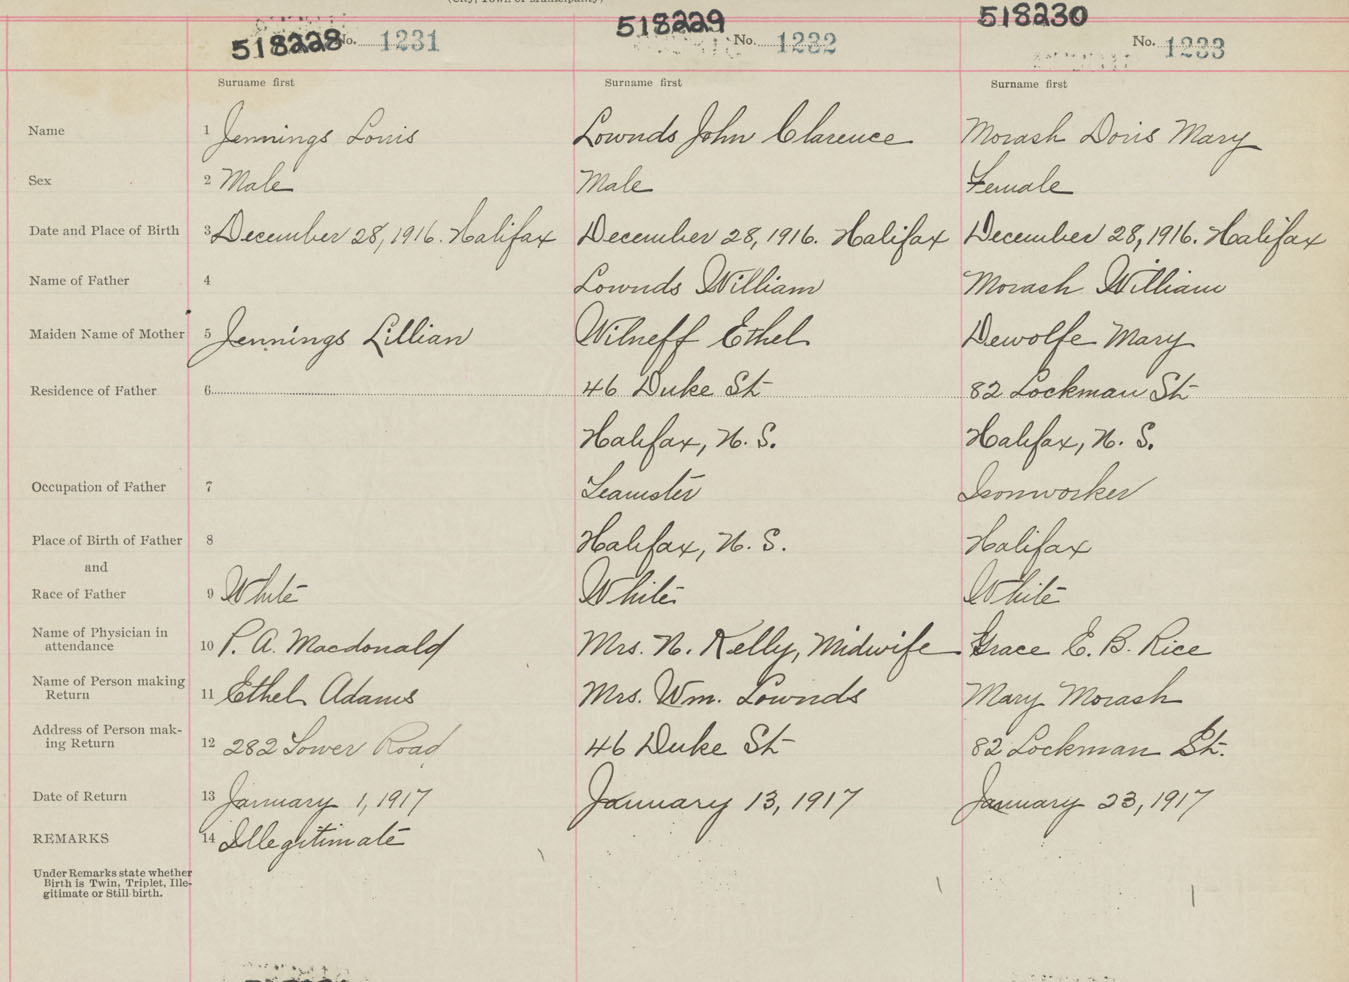 (City, Town or Municipality)
518228 No. 1231 518229 No. 1232 518230 No. 1233
Surname first Surname first Surname first
Name 1 Jennings Louis Lownds John Clarence Morash Doris Mary
Sex 2 Male Male Female
Date and Place of Birth 3 December 28, 1916. Halifax December 28, 1916. Halifax December 28, 1916. Halifax
Name of Father 4 Lownds William Morash William
Maiden Name of Mother 5 Jennings Lillian Wilneff Ethel Dewolfe Mary
Residence of Father 6 46 Duke St 82 Lockman St
Halifax, N. S. Halifax, N. S.
Occupation of Father 7 Teamster Ironworker
Place of Birth of Father 8 Halifax, N. S. Halifax
and
Race of Father 9 White White White
Name of Physician in
attendance 10 P. A. Macdonald Mrs. N. Kelly, Midwife Grace E. B. Rice
Name of Person making
Return 11 Ethel Adams Mrs. Wm. Lownds Mary Morash
Address of Person mak-
ing Return 12 282 Tower Road 46 Duke St 82 Lockman St.
Date of Return 13 January 1, 1917 January 13, 1917 January 23, 1917
REMARKS 14 Illegitimate
Under Remarks state whether
Birth is Twin, Triplet, Ille-
gitimate or Still birth.